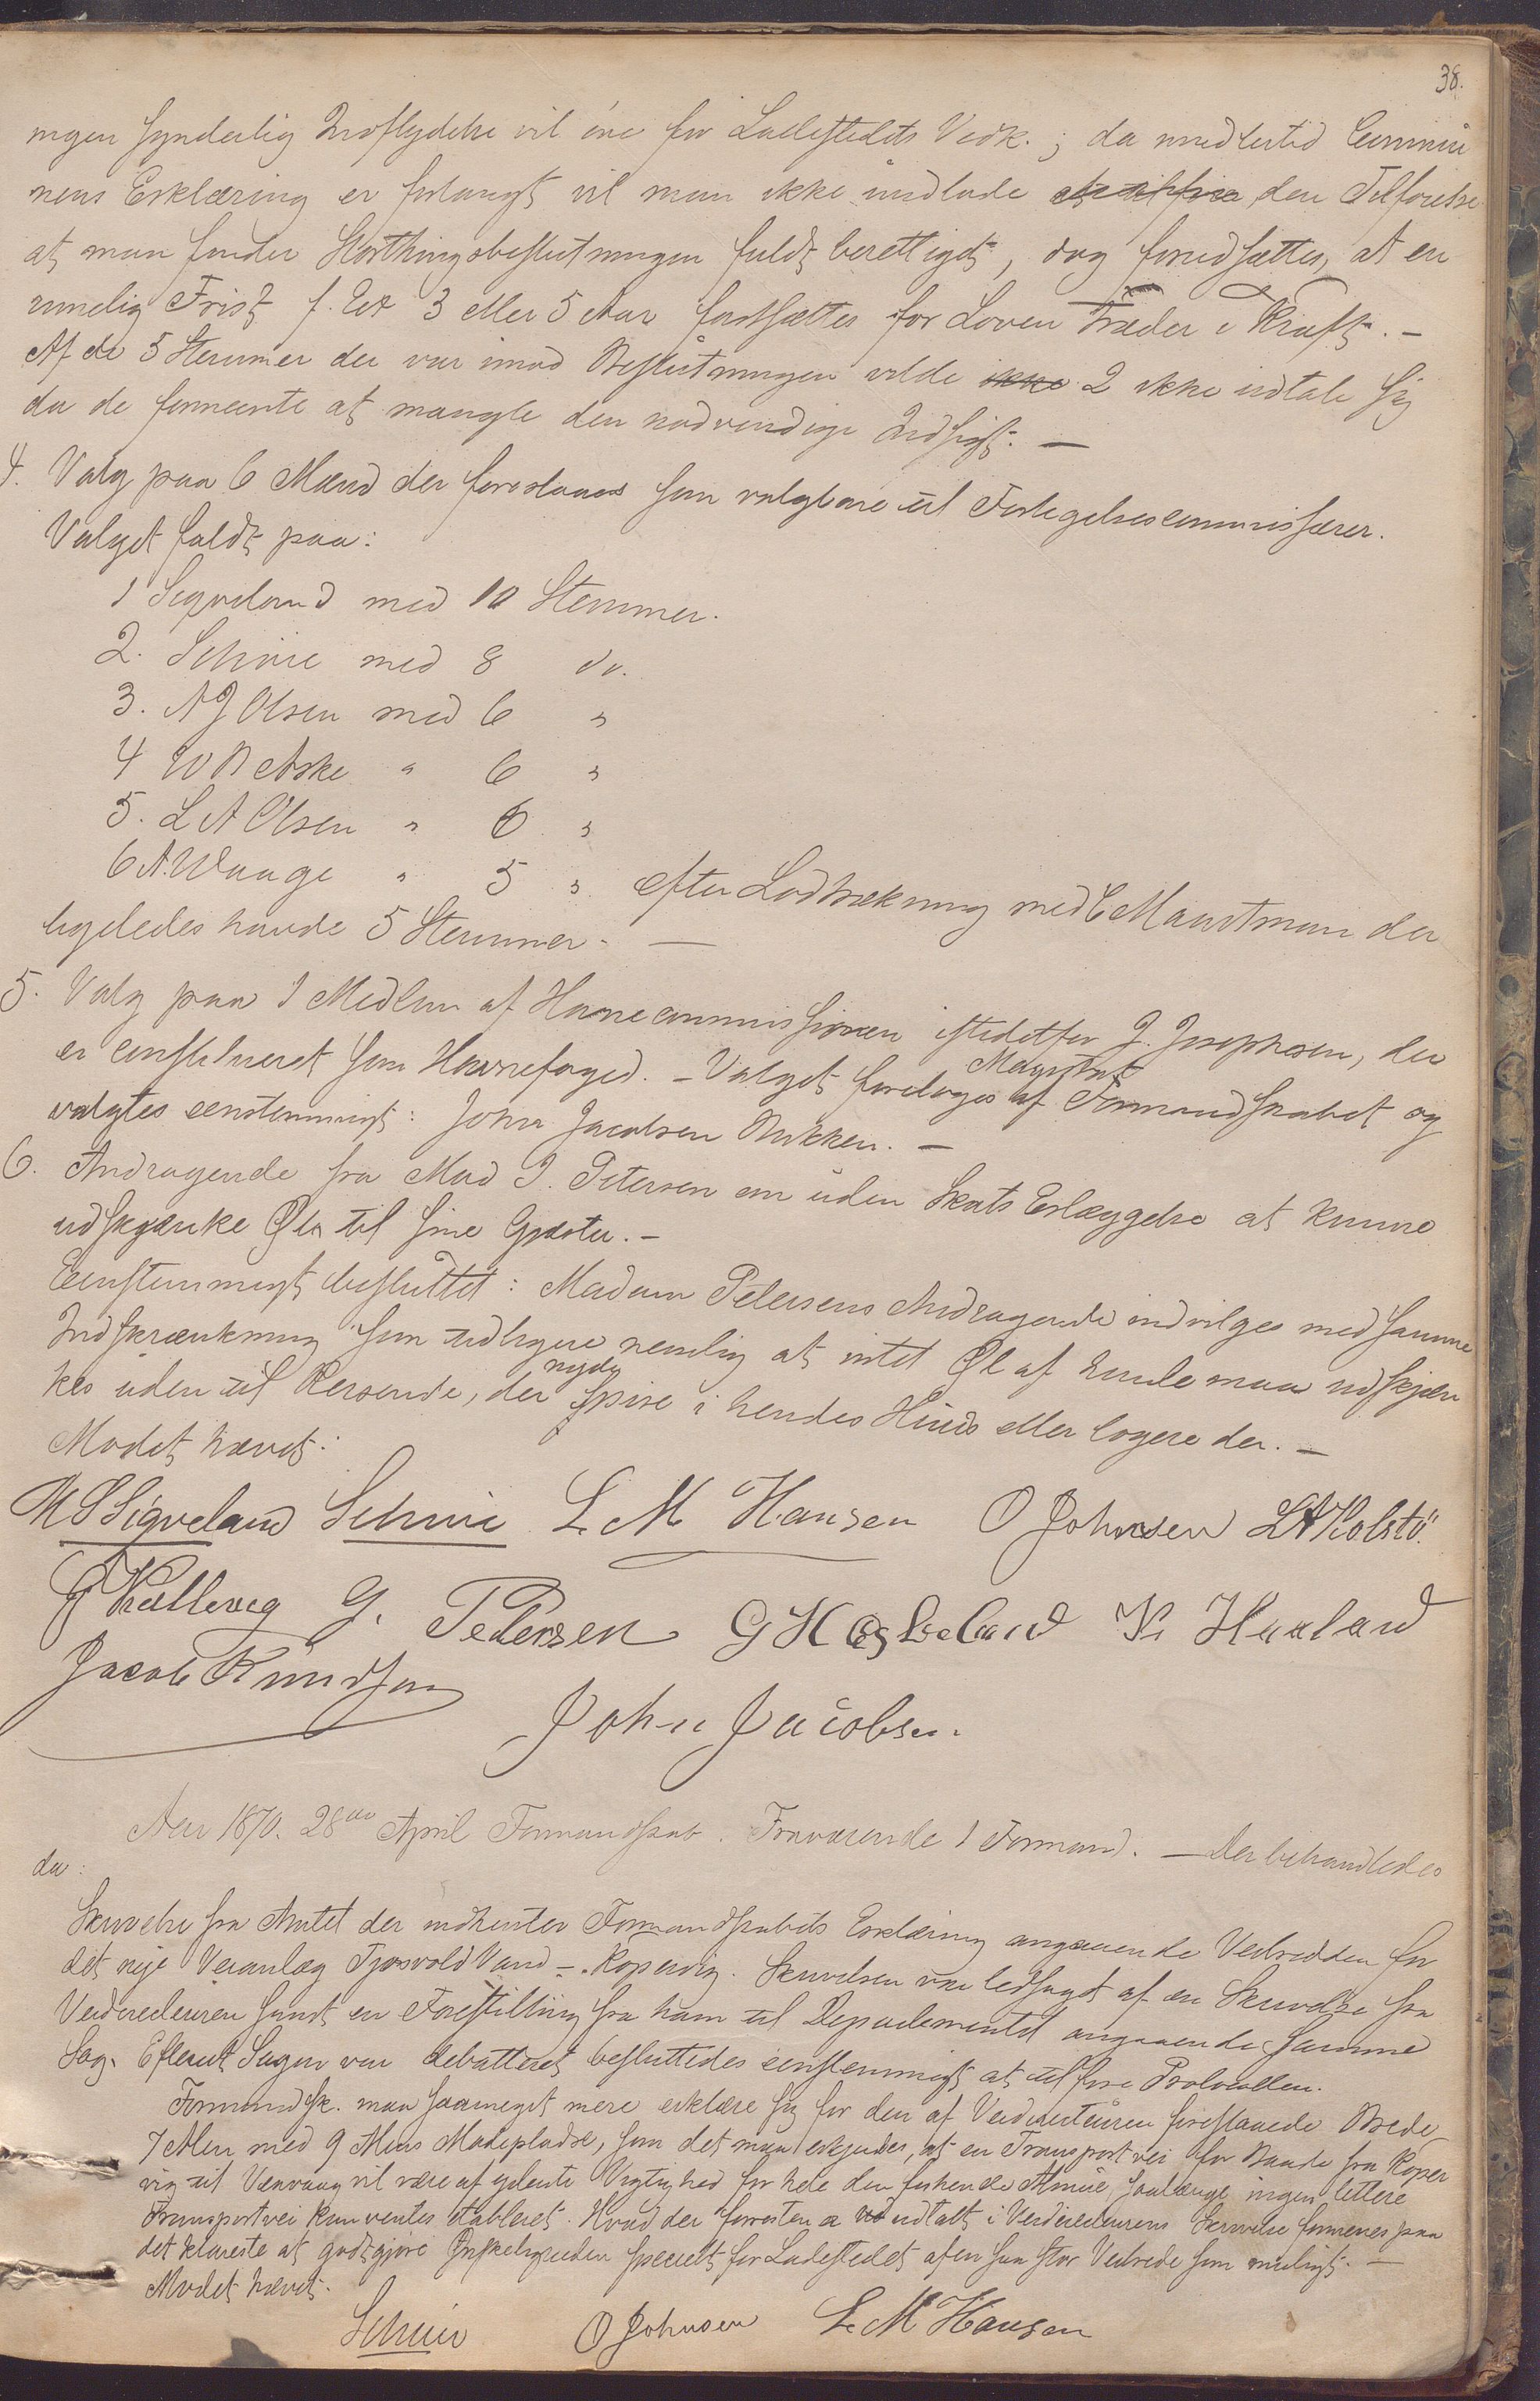 38.
ingen synderlig Indflydelse vil øve for Ladestedets Vedk.; da imidlertid Commu
nens Erklæring er forlangt vil man ikke undlade at tilføie den Tilføielse
at man finder Storthingsbeslutningen fuldt berettiget, dog forudsættes, at en
rimelig Frist f. Ex 3 eller 5 Aar fastsættes før Loven træder i Kraft. –
Af de 5 Stemmer der var imod Beslutningen vilde ikke 2 ikke udtale sig
da de formeente at mangle den nødvendige Indsigt. —
4. Valg paa 6 Mænd der foreslaaes som valgbare til Forligelsescommissærer.
Valget faldt paa:
1 Sigveland med 10 Stemmer.
2. Schiøie med 8 do.
3. A J Olsen med 6 "
4 W B Aske " 6 "
5. L A Olsen " 6 "
6 A. Waage " 5 " efter Lodtrækning med C Maurtman der
ligeledes havde 5 Stemmer. —
5. Valg paa 1 Medlem af Havnecommissionen istedetfor J. Josephsen, der
er constitueret som Havnefoged. – Valget foretoges af Magistrat Formandskabet og
valgtes eenstemmigt: John Jacobsen Nikken. –
6. Andragende fra Mad J. Petersen om uden Skats Erlæggelse at kunne
udskjænke Øl til sine Gjæster. –
Eenstemmigt besluttet: Madam Petersens Andragende indvilges med samme
Indskrænkning som tidligere nemlig at intet Øl af hende maa udskjæn
kes uden til Reisende, der nyde Spise i hendes Huus eller logere der. –
Mødet hævet:
M S Sigveland Schiøie L. M Hansen O Johnsen L A Kolstö.
Kallevig G. Pedersen G H Eskeland Haaland
Jacob Knudsen
John Jacobsen.
Aar 1870. 28de April Formandskab. Fraværende 1 Formand. – Der behandledes
da:
Skrivelse fra Amtet der indhenter Formandskabets Erklæring angaaende Veibredden for
det nye Veianlæg Tjosvold Vand – Kopervig. Skrivelsen var ledsaget af en Skrivelse fra
Veidirecteuren samt en Forestilling fra ham til Departementet angaaende samme
Sag. Efterat Sagen var debatteret besluttedes eenstemmigt at tilføre Protocollen.
Formandsk. maa saameget mere erklære sig for den af Veidirecteuren foreslaaede Brede
7 Alen med 9 Alens Mødepladse, som det maa erkjendes, at en Transportvei for Baade fra Koper
vig til Veavaag vil være af yderste Vigtighed for hele den fiskende Almue, saalænge ingen lettere
Transportvei kan ventes etableret. Hvad der forresten er ud udtalt i Veidirecteurens Skrivelse formenes paa
det klareste at godtgjøre Ønskeligheden specielt for Ladestedet af en saa stor Veibrede som muligt. –
Mødet hævet.
Schiøie O Johnsen L. M Hansen